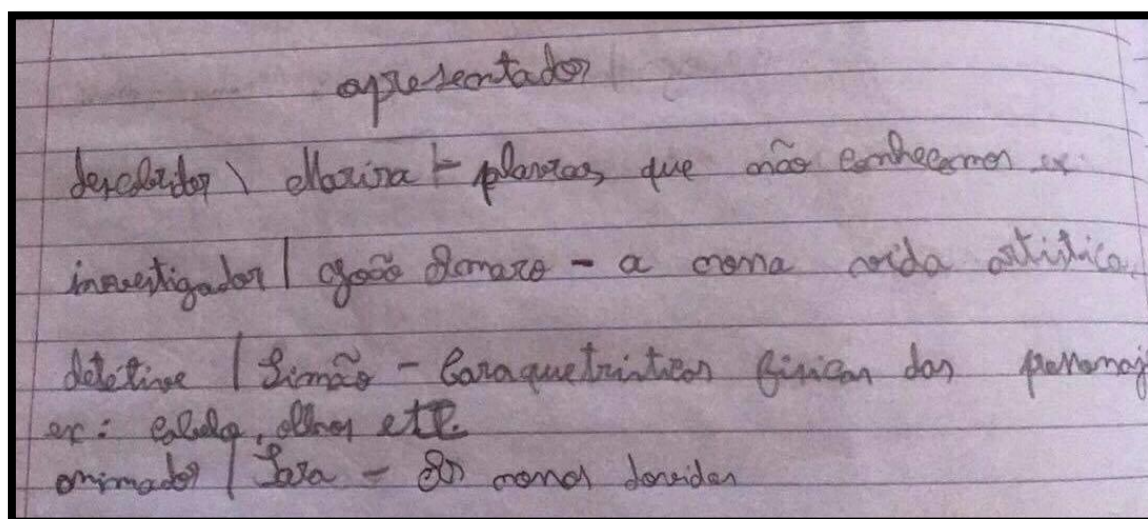 apresentador
descobridor \ Marina - palavras, que não conhecemos ex:
investigador | João Amaro - a nossa vida artistica,
detetive | Simão - Caraquetristicas fisicas das personaj
ex: cabelo, olhos etc.
animador | Sara - As nossas duvidas